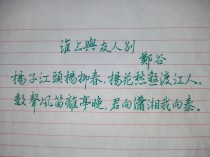 淮上與友人別
鄭谷
楊子江頭楊柳春，楊花愁殺渡江人。
數聲風笛離亭晚，君向瀟湘我向秦。